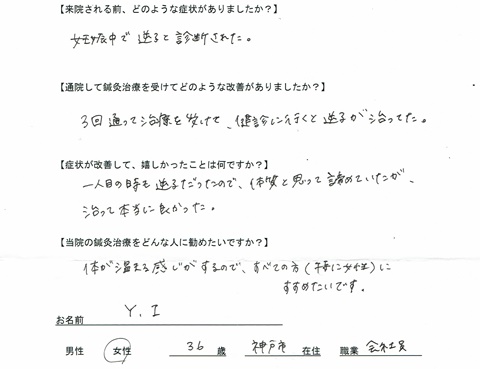 【来院される前、どのような症状がありましたか？】
妊娠中で逆子と診断された。
【通院して鍼灸治療を受けてどのような改善がありましたか？】
3回通って治療を受けて、健診に行くと逆子が治ってた。
【症状が改善して、嬉しかったことは何ですか？】
一人目の時も逆子だったので、体質と思って諦めていたが、
治って本当に良かった。
【当院の鍼灸治療をどんな人に勧めたいですか？】
体が温まる感じがするので、すべての方（特に女性）に
すすめたいです。
お名前 Y.I
男性 女性 36 歳 神戸市 在住 職業 会社員